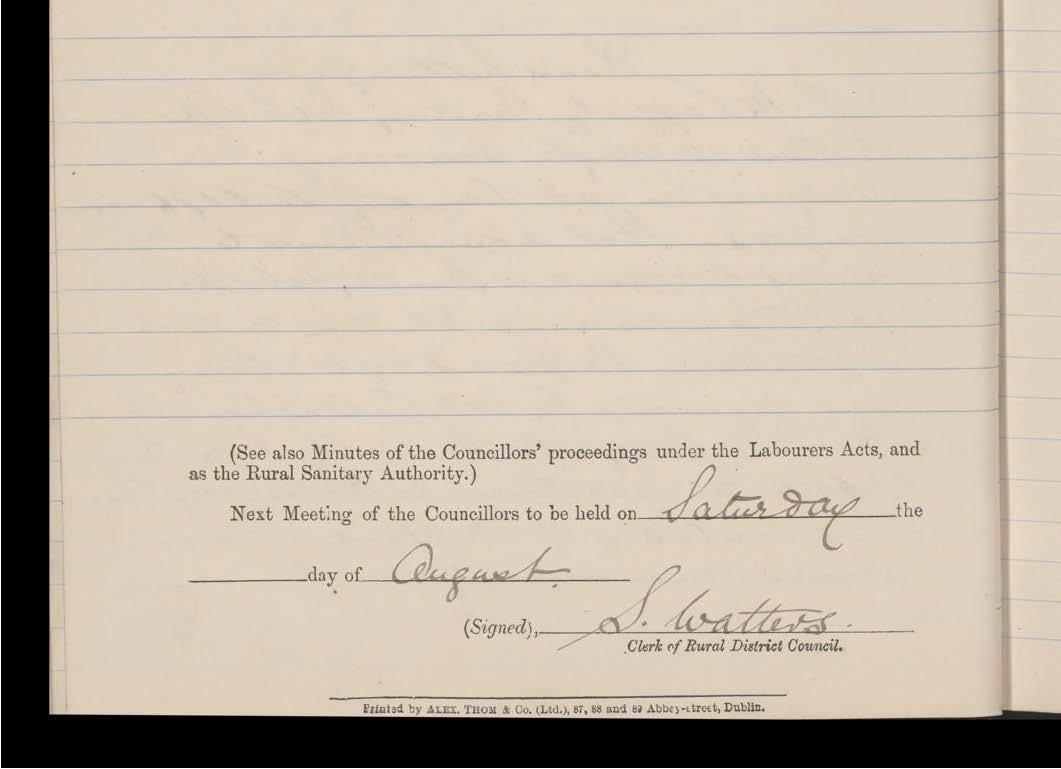 (See also Minutes of the Councillors' proceedings under the Labourers Acts, and
as the Rural Sanitary Authority.)
Next Meeting of the Councillors to be held on Saturday the
day of August.
(Signed), S. Watters.
Clerk of Rural District Council.
Printed by ALEX. THOM & Co. (Ltd.), 87, 88 and 89 Abbey-street, Dublin.